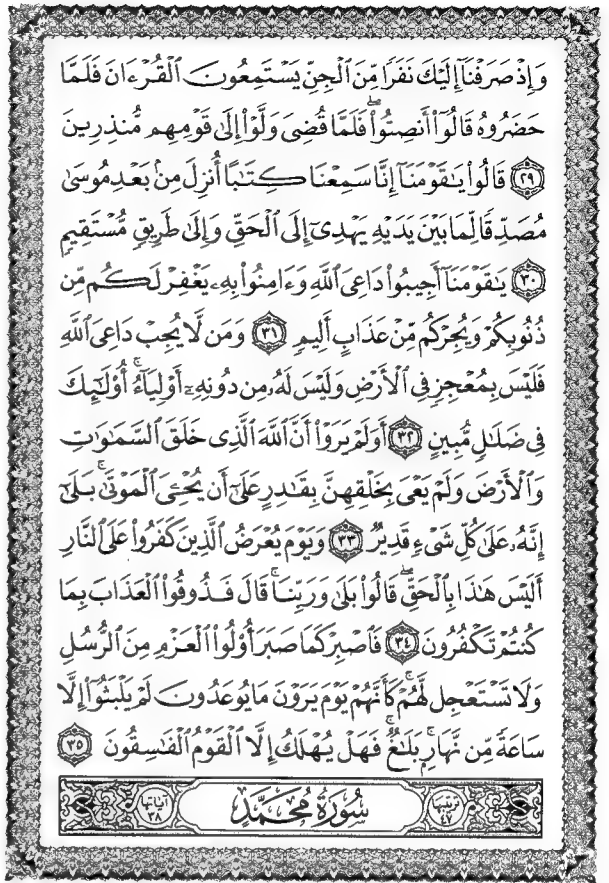 وَإِذْ صَرَفْنَآ إِلَيْكَ نَفَرًا مِّنَ ٱلْجِنِّ يَسْتَمِعُونَ ٱلْقُرْءَانَ فَلَمَّا
حَضَرُوهُ قَالُوٓا۟ أَنصِتُوا۟ ۖ فَلَمَّا قُضِىَ وَلَّوْا۟ إِلَىٰ قَوْمِهِم مُّنذِرِينَ
٢٩ قَالُوا۟ يَٰقَوْمَنَآ إِنَّا سَمِعْنَا كِتَٰبًا أُنزِلَ مِنۢ بَعْدِ مُوسَىٰ
مُصَدِّقًا لِّمَا بَيْنَ يَدَيْهِ يَهْدِىٓ إِلَى ٱلْحَقِّ وَإِلَىٰ طَرِيقٍ مُّسْتَقِيمٍ
٣٠ يَٰقَوْمَنَآ أَجِيبُوا۟ دَاعِىَ ٱللَّهِ وَءَامِنُوا۟ بِهِۦ يَغْفِرْ لَكُم مِّن
ذُنُوبِكُمْ وَيُجِرْكُم مِّنْ عَذَابٍ أَلِيمٍ ٣١ وَمَن لَّا يُجِبْ دَاعِىَ ٱللَّهِ
فَلَيْسَ بِمُعْجِزٍ فِى ٱلْأَرْضِ وَلَيْسَ لَهُۥ مِن دُونِهِۦٓ أَوْلِيَآءُ ۚ أُو۟لَٰٓئِكَ
فِى ضَلَٰلٍ مُّبِينٍ ٣٢ أَوَلَمْ يَرَوْا۟ أَنَّ ٱللَّهَ ٱلَّذِى خَلَقَ ٱلسَّمَٰوَٰتِ
وَٱلْأَرْضَ وَلَمْ يَعْىَ بِخَلْقِهِنَّ بِقَٰدِرٍ عَلَىٰٓ أَن يُحْۦِىَ ٱلْمَوْتَىٰ ۚ بَلَىٰٓ
إِنَّهُۥ عَلَىٰ كُلِّ شَىْءٍ قَدِيرٌ ٣٣ وَيَوْمَ يُعْرَضُ ٱلَّذِينَ كَفَرُوا۟ عَلَى ٱلنَّارِ
أَلَيْسَ هَٰذَا بِٱلْحَقِّ ۖ قَالُوا۟ بَلَىٰ وَرَبِّنَا ۚ قَالَ فَذُوقُوا۟ ٱلْعَذَابَ بِمَا
كُنتُمْ تَكْفُرُونَ ٣٤ فَٱصْبِرْ كَمَا صَبَرَ أُو۟لُوا۟ ٱلْعَزْمِ مِنَ ٱلرُّسُلِ
وَلَا تَسْتَعْجِل لَّهُمْ ۚ كَأَنَّهُمْ يَوْمَ يَرَوْنَ مَا يُوعَدُونَ لَمْ يَلْبَثُوٓا۟ إِلَّا
سَاعَةً مِّن نَّهَارٍۭ ۚ بَلَٰغٌ ۚ فَهَلْ يُهْلَكُ إِلَّا ٱلْقَوْمُ ٱلْفَٰسِقُونَ ٣٥
ترتيبها ٤٧ سُورَةُ مُحَمَّدٍ آياتها ٣٨